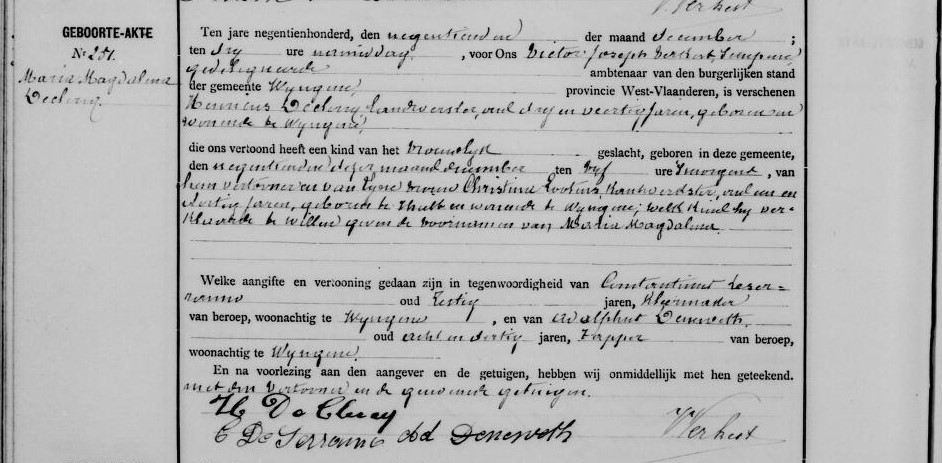 V Verhest
GEBOORTE-AKTE
Nr 251.
Maria Magdalena
Declercq.
Ten jare negentienhonderd, den negentienden der maand december ;
ten dry ure namiddag , voor Ons Victor Joseph Verhest, Schepene
gedelegueerde ambtenaar van den burgerlijken stand
der gemeente Wyngene provincie West-Vlaanderen, is verschenen
Henricus Declercq landwerker, oud dry en veertig jaren, geboren en
wonende te Wyngene,
die ons vertoond heeft een kind van het vrouwelyk geslacht, geboren in deze gemeente,
den negentienden dezer maand december ten vyf ure 's morgens , van
hem vertooner en van zyne vrouw Christina Lootens kantwerkster, oud een en
dertig jaren, geboren te Thielt en wonende te Wyngene; welk kind hy ver-
klaarde te willen geven de voornamen van Maria Magdalena.
Welke aangifte en vertooning gedaan zijn in tegenwoordigheid van Constantinus Deser-
ranno oud zestig jaren, kleermaker
van beroep, woonachtig te Wyngene , en van Adolphus Deneweth,
oud acht en dertig jaren, van beroep,
woonachtig te Wyngene.
En na voorlezing aan den aangever en de getuigen, hebben wij onmiddellijk met hen geteekend.
met den vertooner en de genoemde getuigen.
H De Clercq
C De Serranno Ad Deneweth V Verhest